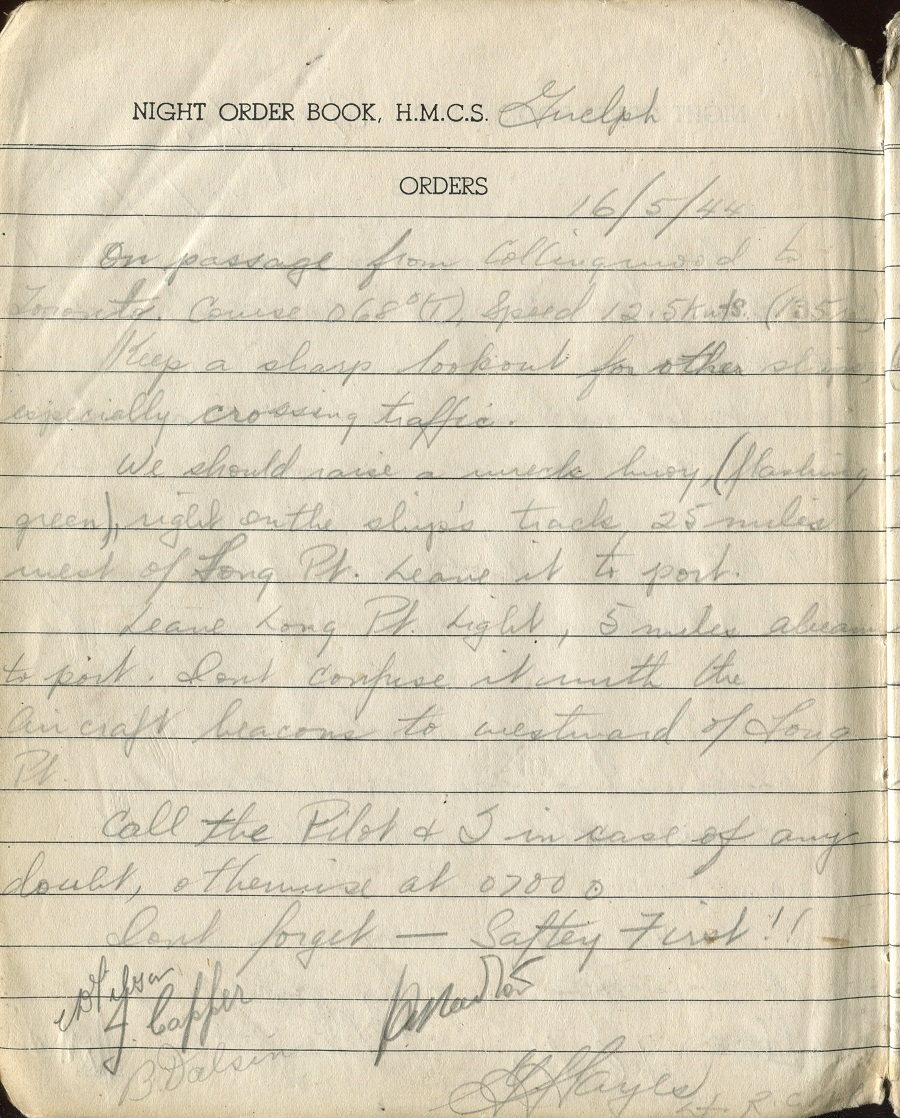 NIGHT ORDER BOOK, H.M.C.S. Guelph
ORDERS
16/5/44
On passage from Collingwood to
Toronto. Course 068°(T), Speed 12.5 knts.
Keep a sharp lookout for other ships,
especially crossing traffic.
We should raise a wreck buoy, (flashing
green), right on the ship's track 25 miles
west of Long Pt. Leave it to port.
Leave Long Pt. Light, 5 miles abeam
to port. Dont confuse it with the
Aircraft beacons to westward of Long
Pt.
Call the Pilot & I in case of any
doubt, otherwise at 0700
Dont forget — Saftey First!!
Capper
B Dalsin
Hayes